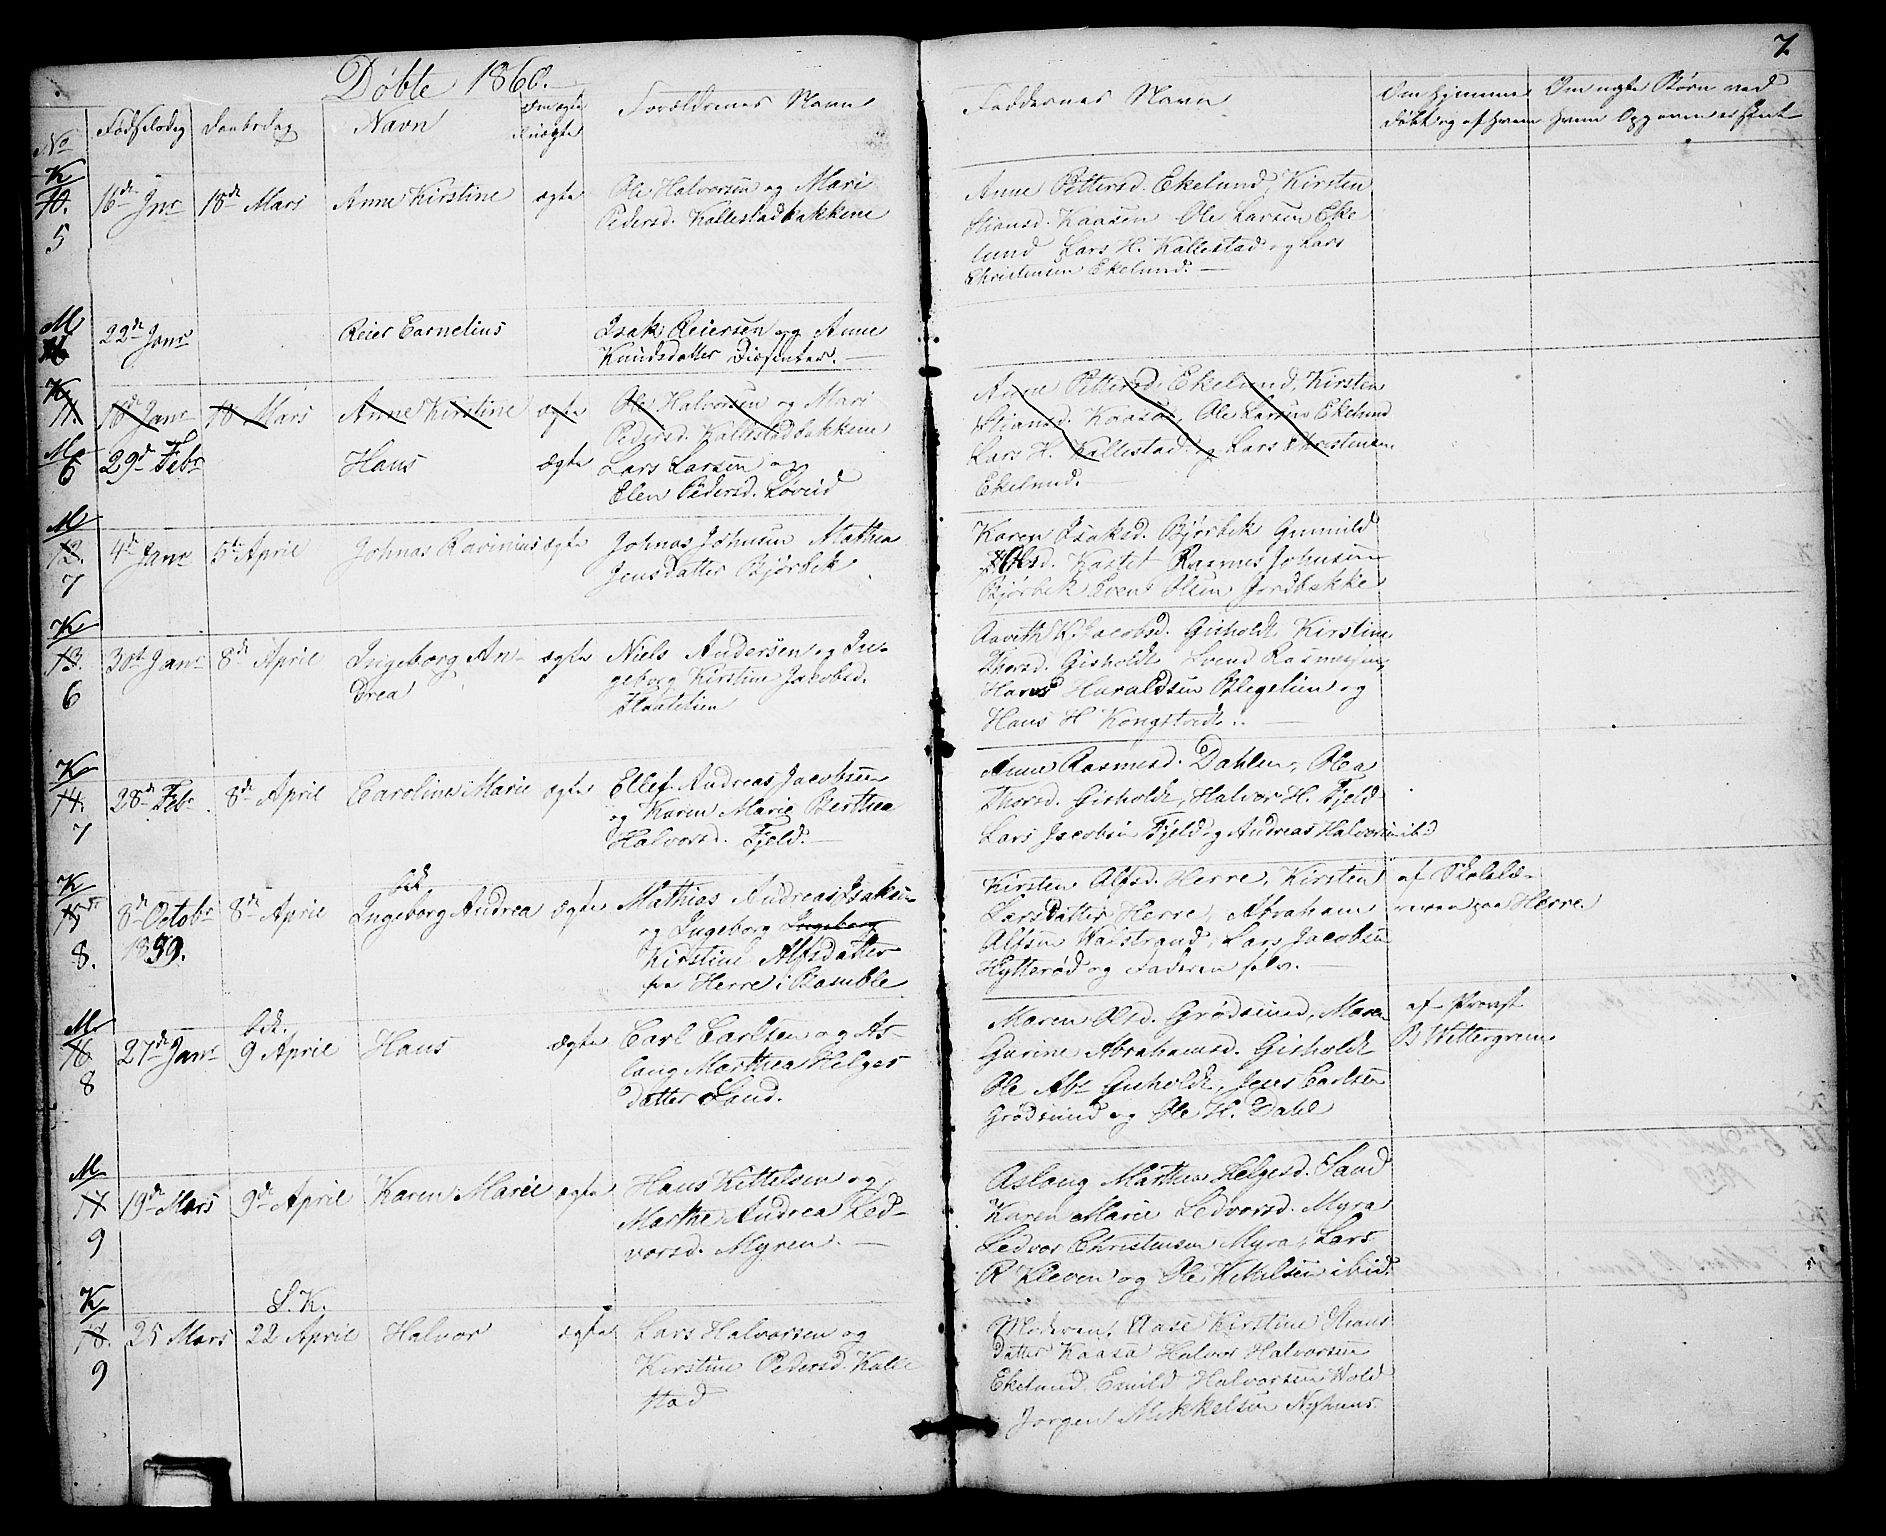 7.
Døbte 1860.
No
Fødselsdag
Daabsdag
Navn
Om ægte
el. uægte
Forældrenes Navn
Faddernes Navn
Om hjemme
døbt og af hvem
Om uægte Børn ved
hvem Opgaven er skeet
K
10.
5
16de Jnr
18de Mars
Anne Kirstine
ægte
Ole Halvorsen og Mari
Pedersd. Kallestadbakkene
Anne Pettersd. Ekelund, Kirsten
Stiansd. Kaasen Ole Larsen Eke
lund Lars H. Kallestad og Lars
Christensen Ekelund. —
M
22de Janr
Reier Cornelius
Isak Reiersen og Anne
Knudsdatter Disenter. —
K
11.
16de Janr
18 Mars
Anne Kirstine
ægte
Ole Halvorsen og Mari
Pedersd. Kallestadbakkene
Anne Pettersd. Ekelund, Kirsten
Stiansd. Kaasa, Ole Larsen Ekelund
Lars H. Kallestad og Lars Christensen
Ekelund.
M
6
29de Febr
Hans
ægte
Lars Larsen og
Elen Pedersd. Løveid
M
12.
7
4de Janr
5te April
Johnas Ravinius
ægte
Johnas Johnsen Mathea
Jensdatter Bjørbek
Karen Isaksd. Bjørbek Gunnild
Olsd. Kastet Rasmus Johnsen
Bjørbek Even Olsen Jordbakke
K
13.
6
30te Janr
8de April
Ingeborg An-
drea
ægte
Niels Andersen og In-
geborg Kirstine Jacobsd.
Haatelien
Aaveth K. Jacobsd. Gisholdt Kirstine
Thorsd. Gisholdt Svend Rasmusen
Hans Haraldsen Blegelien og
Hans H Kongstved. —
K
14.
7
28de Febr.
8de April
Caroline Marie
ægte
Ellef Andreas Jacobsen
og Karen Marie Berthea
Halvorsd. Fjeld. —
Anne Rasmusd. Dahlen, Olea
Thorsd. Gisholdt, Halvor H. Fjeld
Lars Jacobsen Fjeld og Andreas Halvorsen ibd
K
15
8.
8de Octobr
1859.
8de April
Ingeborg Andrea
ægte
Mathias Andreas Isaksen
og Ingeborg Ingeborg
Kirstine Alfsdatter
fra Herre i Bamble
Kirsten Alfsd. Herre, Kirsten
Larsdatter Herre, Abraham
Alfsen Valstrand, Lars Jacobsen
Hytterød og Faderen selv. —
af Skolelæ-
reren paa Herre
M
16
8
27de Janr
9 April
Hans
ægte
Carl Carlsen og As-
laug Marthea Helges
datter Sand.
Maren Olsd. Grødsund, Maren
Gurine Abrahamsd. Gisholdt
Ole Abr. Gisholdt, Jens Carlsen
Grødsund og Ole H. Dahl
af Provst
B. Wettergreen
M
17
9
19de Mars
9de April
Karen Marie
ægte
Hans Kittelsen og
Marthe Andrea Led-
vorsd. Myren. —
Aslaug Marthea Helgesd. Sand
Karen Marie Ledvorsd. Myra
Ledvor Christensen Myra, Lars
R Kleven og Ole Kittilsen ibid.
K
18.
9
25 Mars
S. K.
22 April
Halvor
ægte
Lars Halvorsen og
Kirstine Pedersd. Kalle
stad
Moderen, Aase Kirstine Stians
datter Kaasa Halvor Halvorsen
Ekelund Emild Halvorsen Wold
Jørgen Mikkelsen Nyhuus